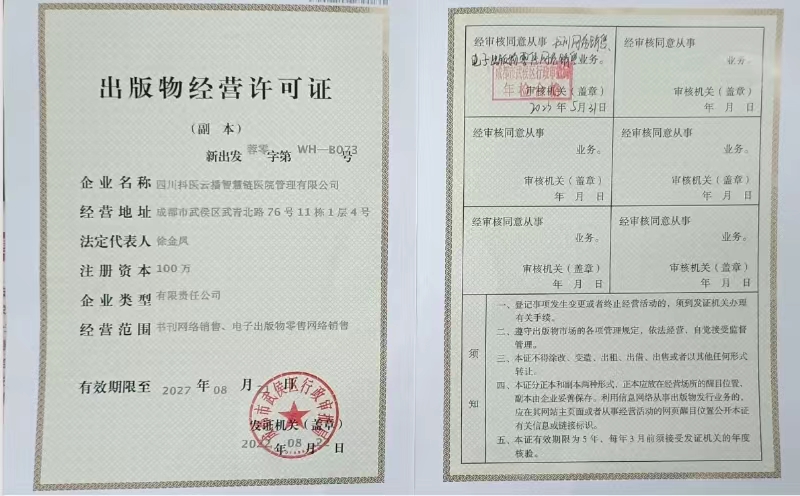 出版物经营许可证
（副 本）
新出发 蓉零 字第 WH—B073 号
企业名称 四川科医云播智慧链医院管理有限公司
经营地址 成都市武侯区武青北路76号11栋1层4号
法定代表人 徐金凤
注册资本 100万
企业类型 有限责任公司
经营范围 书刊网络销售、电子出版物零售网络销售
有效期限至 2027 年 08 月 日
成都市武侯区行政审批局
发证机关（盖章）
年 08 月 22 日
经审核同意从事 书刊网络销售、
电子出版物零售网络销售 业务。
成都市武侯区行政审批局
年检
审核机关（盖章）
2023年5月31日
经审核同意从事
业务。
审核机关（盖章）
年 月 日
经审核同意从事
业务。
审核机关（盖章）
年 月 日
经审核同意从事
业务。
审核机关（盖章）
年 月 日
经审核同意从事
业务。
审核机关（盖章）
年 月 日
经审核同意从事
业务。
审核机关（盖章）
年 月 日
须知
一、登记事项发生变更或者终止经营活动的，须到发证机关办理
有关手续。
二、遵守出版物市场的各项管理规定，依法经营、自觉接受监督
管理。
三、本证不得涂改、变造、出租、出借、出售或者以其他任何形式
转让。
四、本证分正本和副本两种形式，正本应放在经营场所的醒目位置，
副本由企业妥善保存。利用信息网络从事出版物发行业务的，
应在其网站主页面或者从事经营活动的网页醒目位置公开本证
有关信息或链接标识。
五、本证有效期限为5年，每年3月前须接受发证机关的年度
核验。